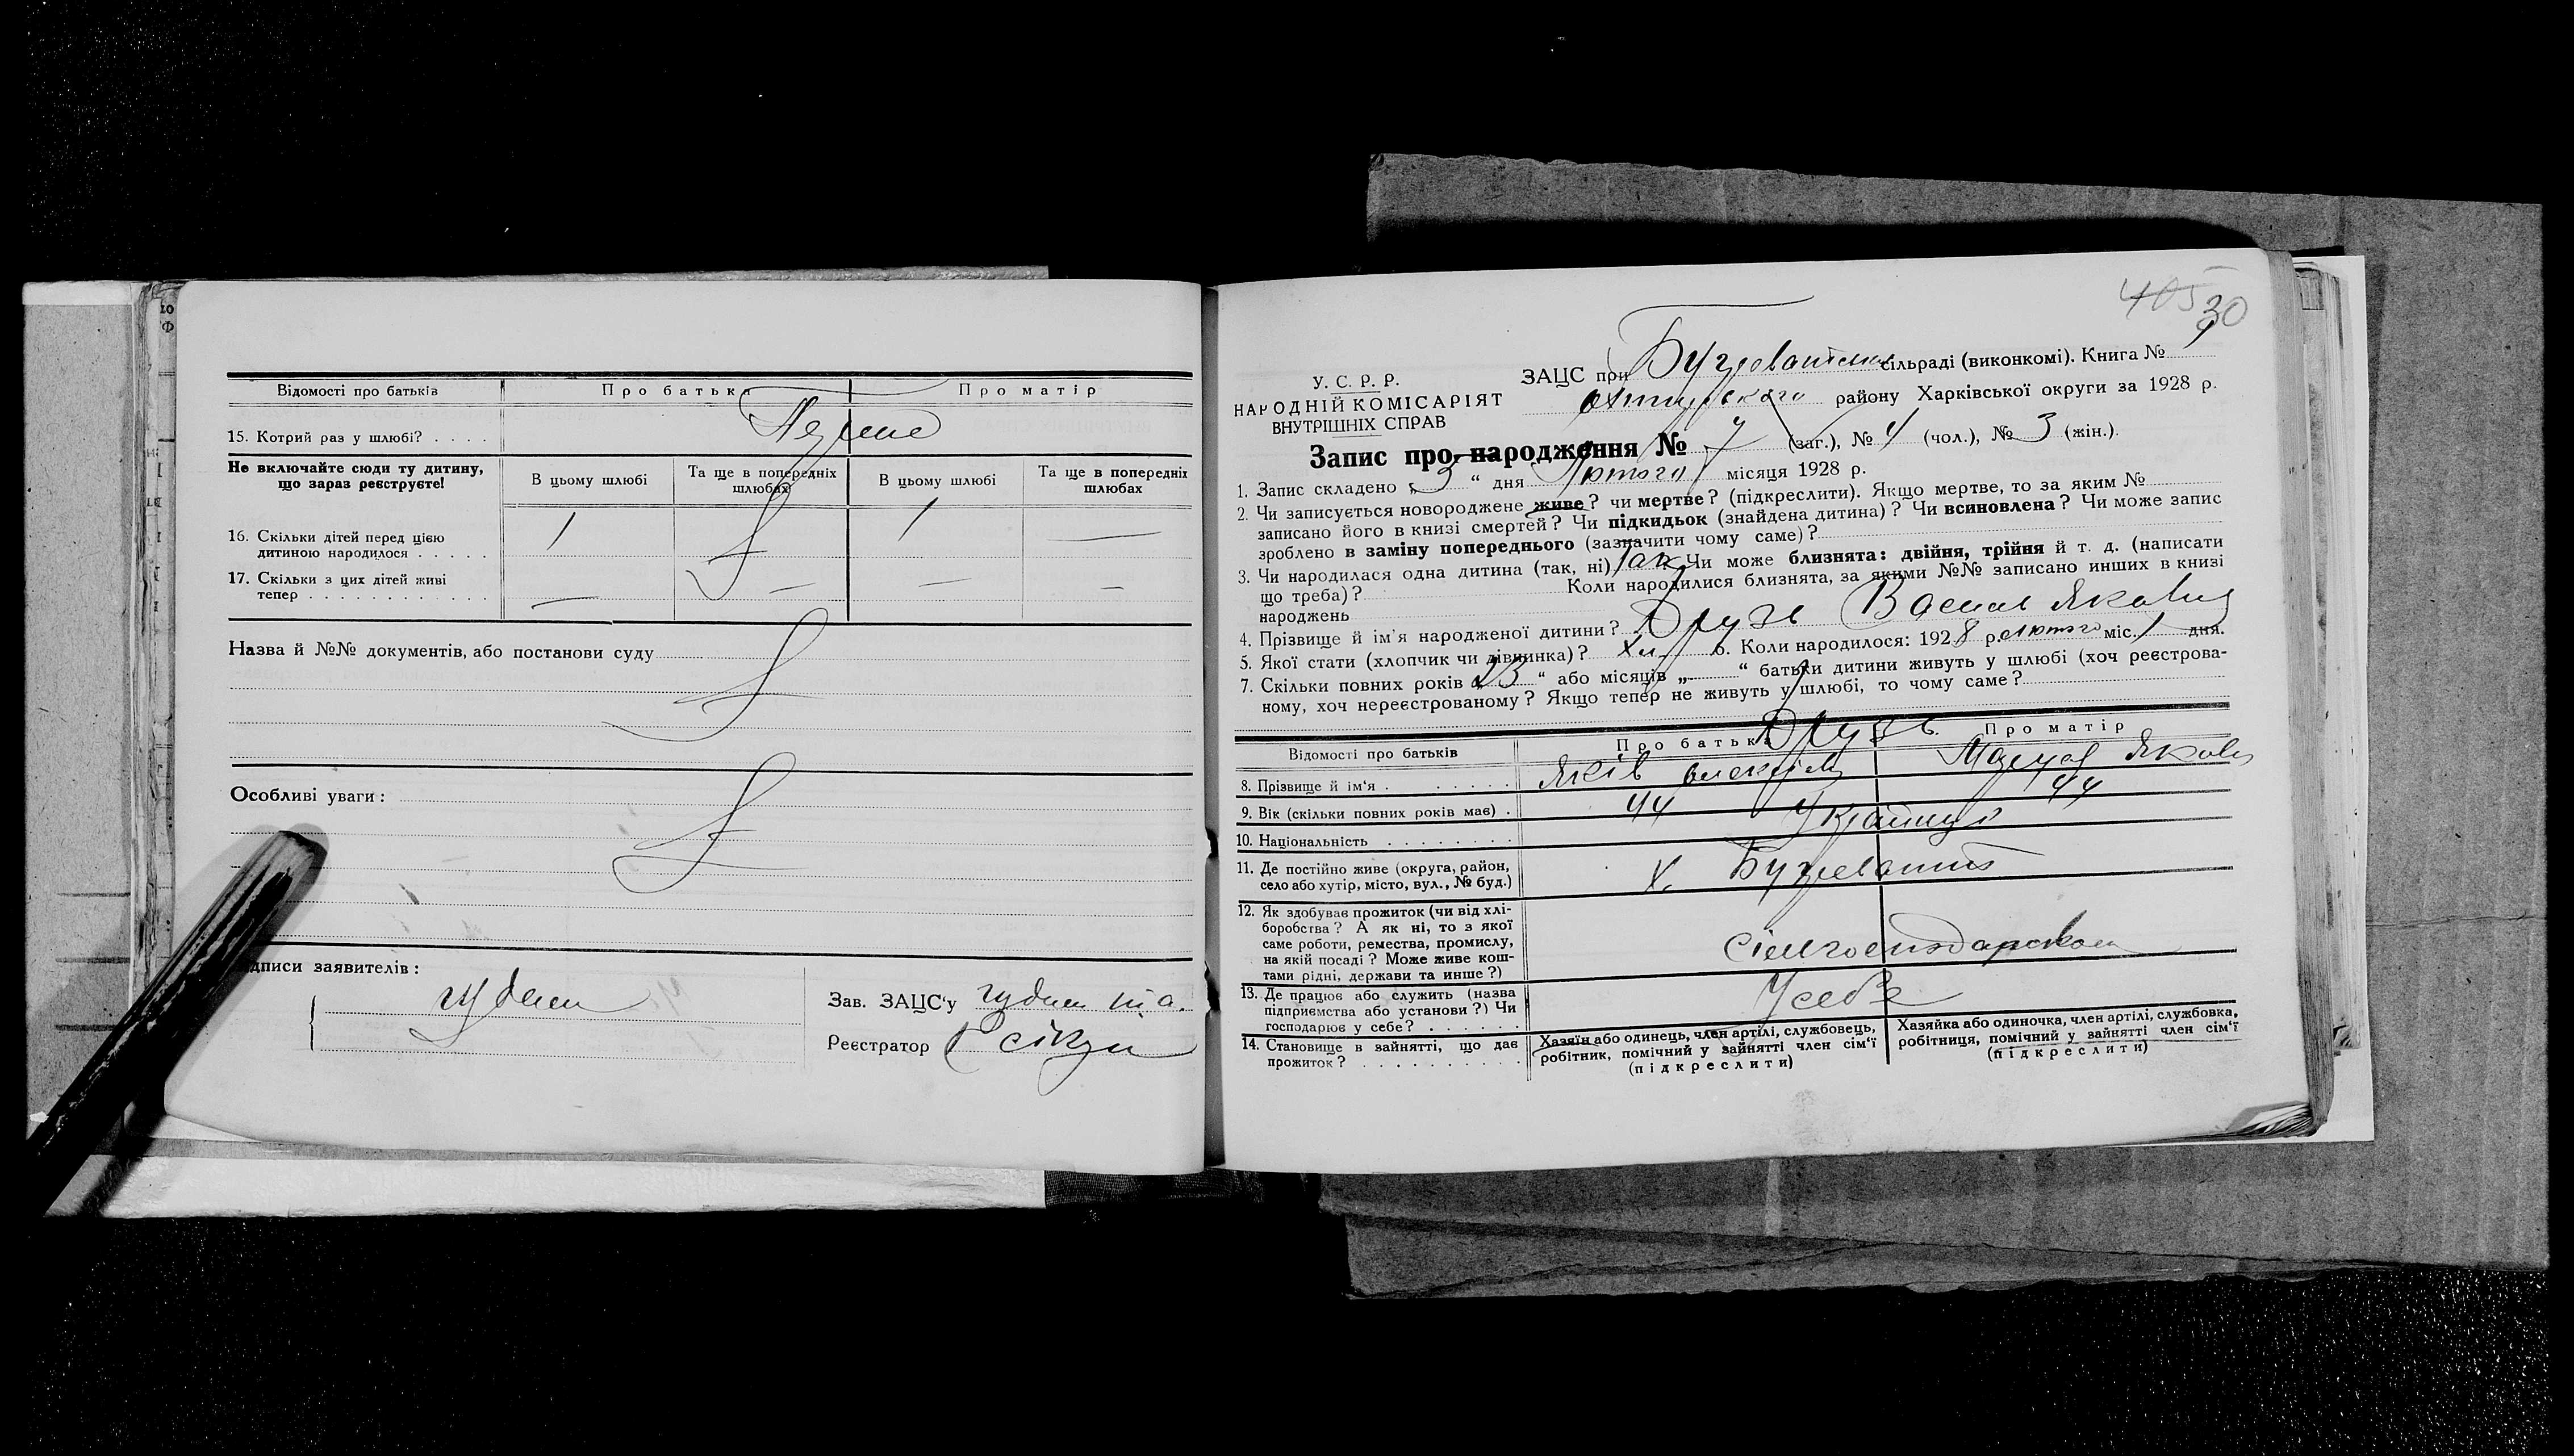 Відомості про батьків
Про батька
Про матір
15. Котрий раз у шлюбі? . . . .
Не включайте сюди ту дитину,
що зараз реєструєте!
В цьому шлюбі
Та ще в попередніх
шлюбах
В цьому шлюбі
Та ще в попередніх
шлюбах
16. Скільки дітей перед цією
дитиною народилося . . . . .
1
1
—
17. Скільки з цих дітей живі
тепер . . . . . . . . . . . .
— — — —
Назва й №№ документів, або постанови суду
Особливі уваги:
дписи заявителів:
Зав. ЗАЦС'у
Реєстратор
405 30
У. С. Р. Р.
НАРОДНІЙ КОМІСАРІЯТ
ВНУТРІШНІХ СПРАВ
ЗАЦС при сільраді (виконкомі). Книга № 1
району Харківської округи за 1928 р.
Запис про народження № 7 (заг.), № 4 (чол.), № 3 (жін.).
1. Запис складено „3“ дня Лютого місяця 1928 р.
2. Чи записується новороджене живе? чи мертве? (підкреслити). Якщо мертве, то за яким №
записано його в книзі смертей? Чи підкидьок (знайдена дитина)? Чи всиновлена? Чи може запис
зроблено в заміну попереднього (зазначити чому саме)?
3. Чи народилася одна дитина (так, ні) Так Чи може близнята: двійня, трійня й т. д. (написати
що треба)? Коли народилися близнята, за якими №№ записано инших в книзі
народжень
4. Прізвище й ім'я народженої дитини? Друзь Василь Якович
5. Якої стати (хлопчик чи дівчинка)? Хл. 6. Коли народилося: 1928 р. лютого міс. 1 дня.
7. Скільки повних років „23“ або місяців „—“ батьки дитини живуть у шлюбі (хоч реєстрова-
ному, хоч нереєстрованому? Якщо тепер не живуть у шлюбі, то чому саме?
Відомості про батьків
Про батька
Друзь
Про матір
8. Прізвище й ім'я . . . . . . Яків
9. Вік (скільки повних років має) . 44 44
10. Національність . . . . . . . . Українці
11. Де постійно живе (округа, район,
село або хутір, місто, вул., № буд.)
х.
12. Як здобуває прожиток (чи від хлі-
боробства? А як ні, то з якої
саме роботи, ремества, промислу,
на якій посаді? Може живе кош-
тами рідні, держави та инше?)
13. Де працює або служить (назва
підприємства або установи?) Чи
господарює у себе? . . . . . .
У себе
14. Становище в зайнятті, що дає
прожиток? . . . . . . . . . .
Хазяїн або одинець, член артілі, службовець,
робітник, помічний у зайнятті член сім'ї
(підкреслити)
Хазяйка або одиночка, член артілі, службовка,
робітниця, помічний у зайнятті член сім'ї
(підкреслити)